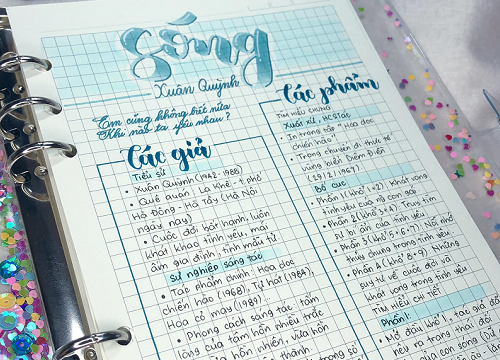 Sóng
Xuân Quỳnh
Em cũng không biết nữa
Khi nào ta yêu nhau?
Các giả
Tiểu sử
• Xuân Quỳnh (1942-1988)
• Quê quán: La Khê - t' phố
Hà Đông - Hà Tây (Hà Nội
ngày nay)
• Cuộc đời bất hạnh, luôn
khát khao tình yêu, mái
ấm gia đình, tình mẫu tử
Sự nghiệp sáng tác
• Tác phẩm chính: Hoa dọc
chiến hào (1968), Tự hát (1984),
Hoa cỏ may (1989)...
• Phong cách sáng tác: tâm
lòng của tâm hồn nhiều trắc
hồn nhiên, vừa hồn
thành
Các phẩm
TÌM HIỂU CHUNG
Xuất xứ, HCST
• In trong tập "Hoa dọc
chiến hào"
• Trong chuyến đi thực tế
vùng biển Diêm Điền
(29/12/1967)
Bố cục
• Phần 1 (khổ 1+2): Khát vọng
tình yêu của ng con gái
• Phần 2 (khổ 3+4): Truy tìm
sự bí ẩn của tình yêu
• Phần 3 (khổ 5+6+7): Nỗi nhớ
thủy chung trong tình yêu
• Phần 4 (khổ 8+9): Những
suy tư về cuộc đời và
khát vọng trong tình yêu
TÌM HIỂU CHI TIẾT
Phần 1:
• Mở đầu khổ 1, tác giả đã
ra trạng thái đối
con sóng